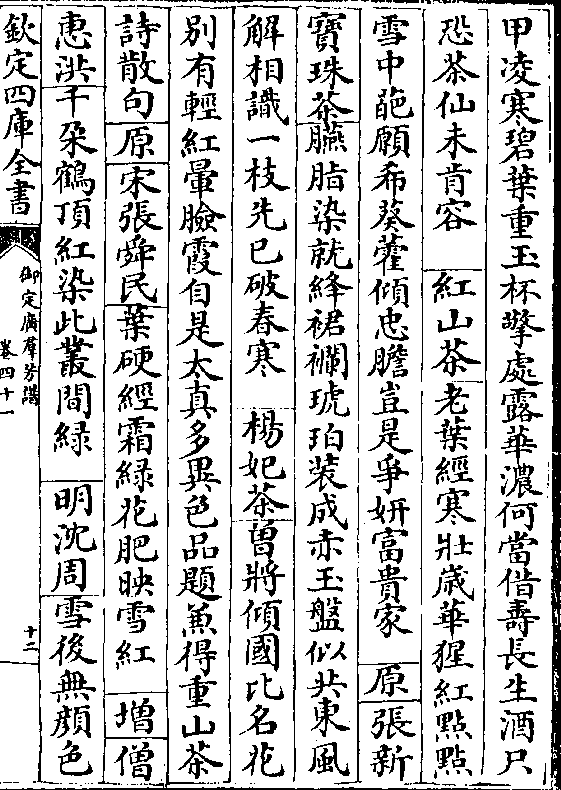 甲凌寒碧葉重玉杯擎處露華濃何當借壽長生酒只
恐茶仙未肯容　紅山茶老葉經寒壯歳華猩紅點點
雪中葩願希葵藿傾忠膽豈是爭妍富貴家　原張新
寳珠茶臙脂染就絳裙襴琥珀装成赤玉盤似共東風
解相識一枝先已破春寒　楊妃茶曽將傾國比名花
别有輕紅暈臉霞自是太真多異色品題兼得重山茶
詩散句原宋張舜民葉硬經霜緑花肥映雪紅　増僧
惠洪千朶鶴頂紅染此叢間緑　明沈周雪後無顔色
欽定四庫全書
御定廣羣芳譜
卷四十一
十二